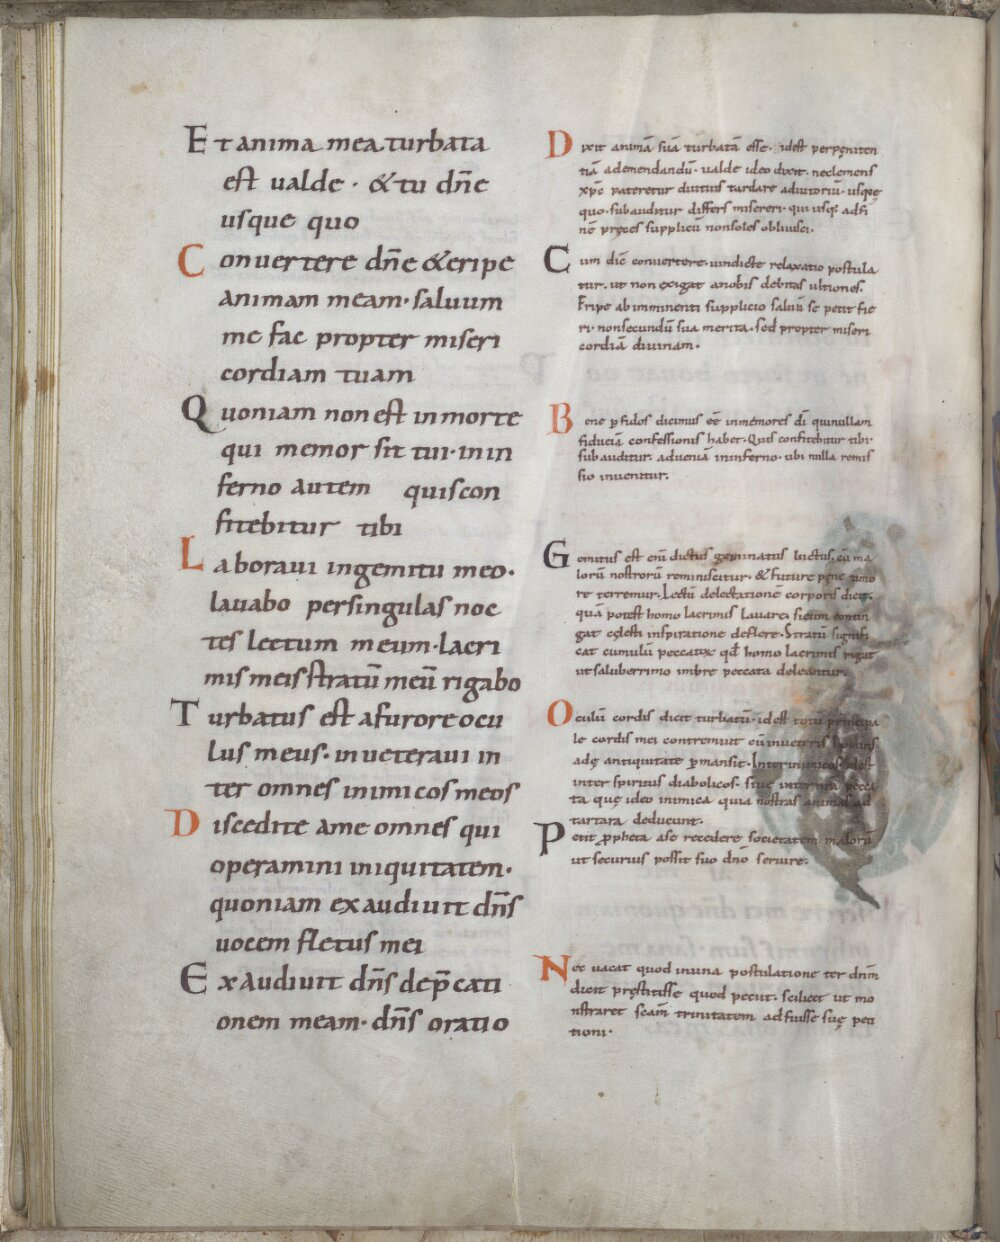 Et anima mea turbata
est ualde · & tu dñe
usque quo
Conuertere dñe & eripe
animam meam · saluum
me fac propter miseri
cordiam tuam
Quoniam non est in morte
qui memor sit tui · in in
ferno autem quis con
fitebitur tibi
Laboraui in gemitu meo ·
lauabo per singulas noc
tes lectum meum · lacri
mis meis stratū meū rigabo
Turbatus est a furore ocu
lus meus · inueteraui in
ter omnes inimicos meos
Discedite a me omnes qui
operamini iniquitatem ·
quoniam exaudiuit dñs
uocem fletus mei
Exaudiuit dñs dep̄cati
onem meam · dñs oratio
Dixit animā suā turbatā esse · idest per peniten
tiā ademendandū · ualde ideo dixit · ne clemens
xp̄c pateretur diutius tardare adiutoriū · usquę
quo · subauditur differs misereri · qui usq; ad fi
nē pręces supplicū non soles obliuisci ·
Cum dic̄ conuertere · uindictę relaxatio postula
tur · ut non exigat a nobis debitas ultiones ·
Eripe ab imminenti supplicio saluū se petit fie
ri · non secundū sua merita · sed propter miseri
cordiā diuinam ·
Bene p̱fidos dicimus eē inmemores dī qui nullam
fiduciā confessionis habet · Quis confitebitur tibi ·
subauditur · ad ueniā in inferno · ubi nulla remis
sio inuenitur ·
Gemitus est enī dictus geminatus luctus · cū ma
lorū nostrorū reminiscitur · & future penę timo
re terremur · Lectū delectationē corporis dicit ·
quā potest homo lacrimis lauare · si eum contin
gat cęlesti inspiratione deflere · Stratū signifi
cat cumulū peccati qd̄ homo lacrimis rigat
ut saluberrimo imbre peccata deleantur
Oculū cordis dicit turbatū · idest totū principa
le cordis mei contremuit cū inueteris hominis
adę antiquitate p̱mansit · Inter inimicos · idest
inter spiritus diabolicos · siuę inter mea pecca
ta quę ideo inimica quia nostras animas ad
tartara deducunt ·
Petit p̱pheta a se recedere societatem malorū
ut securius possit suo dn̄o seruire ·
Nec uacat quod in una postulatione ter dn̄m
dicit pręstitisse quod petiit · scilicet ut mo
nstraret scām trinitatem adfuisse suę peti
tioni ·